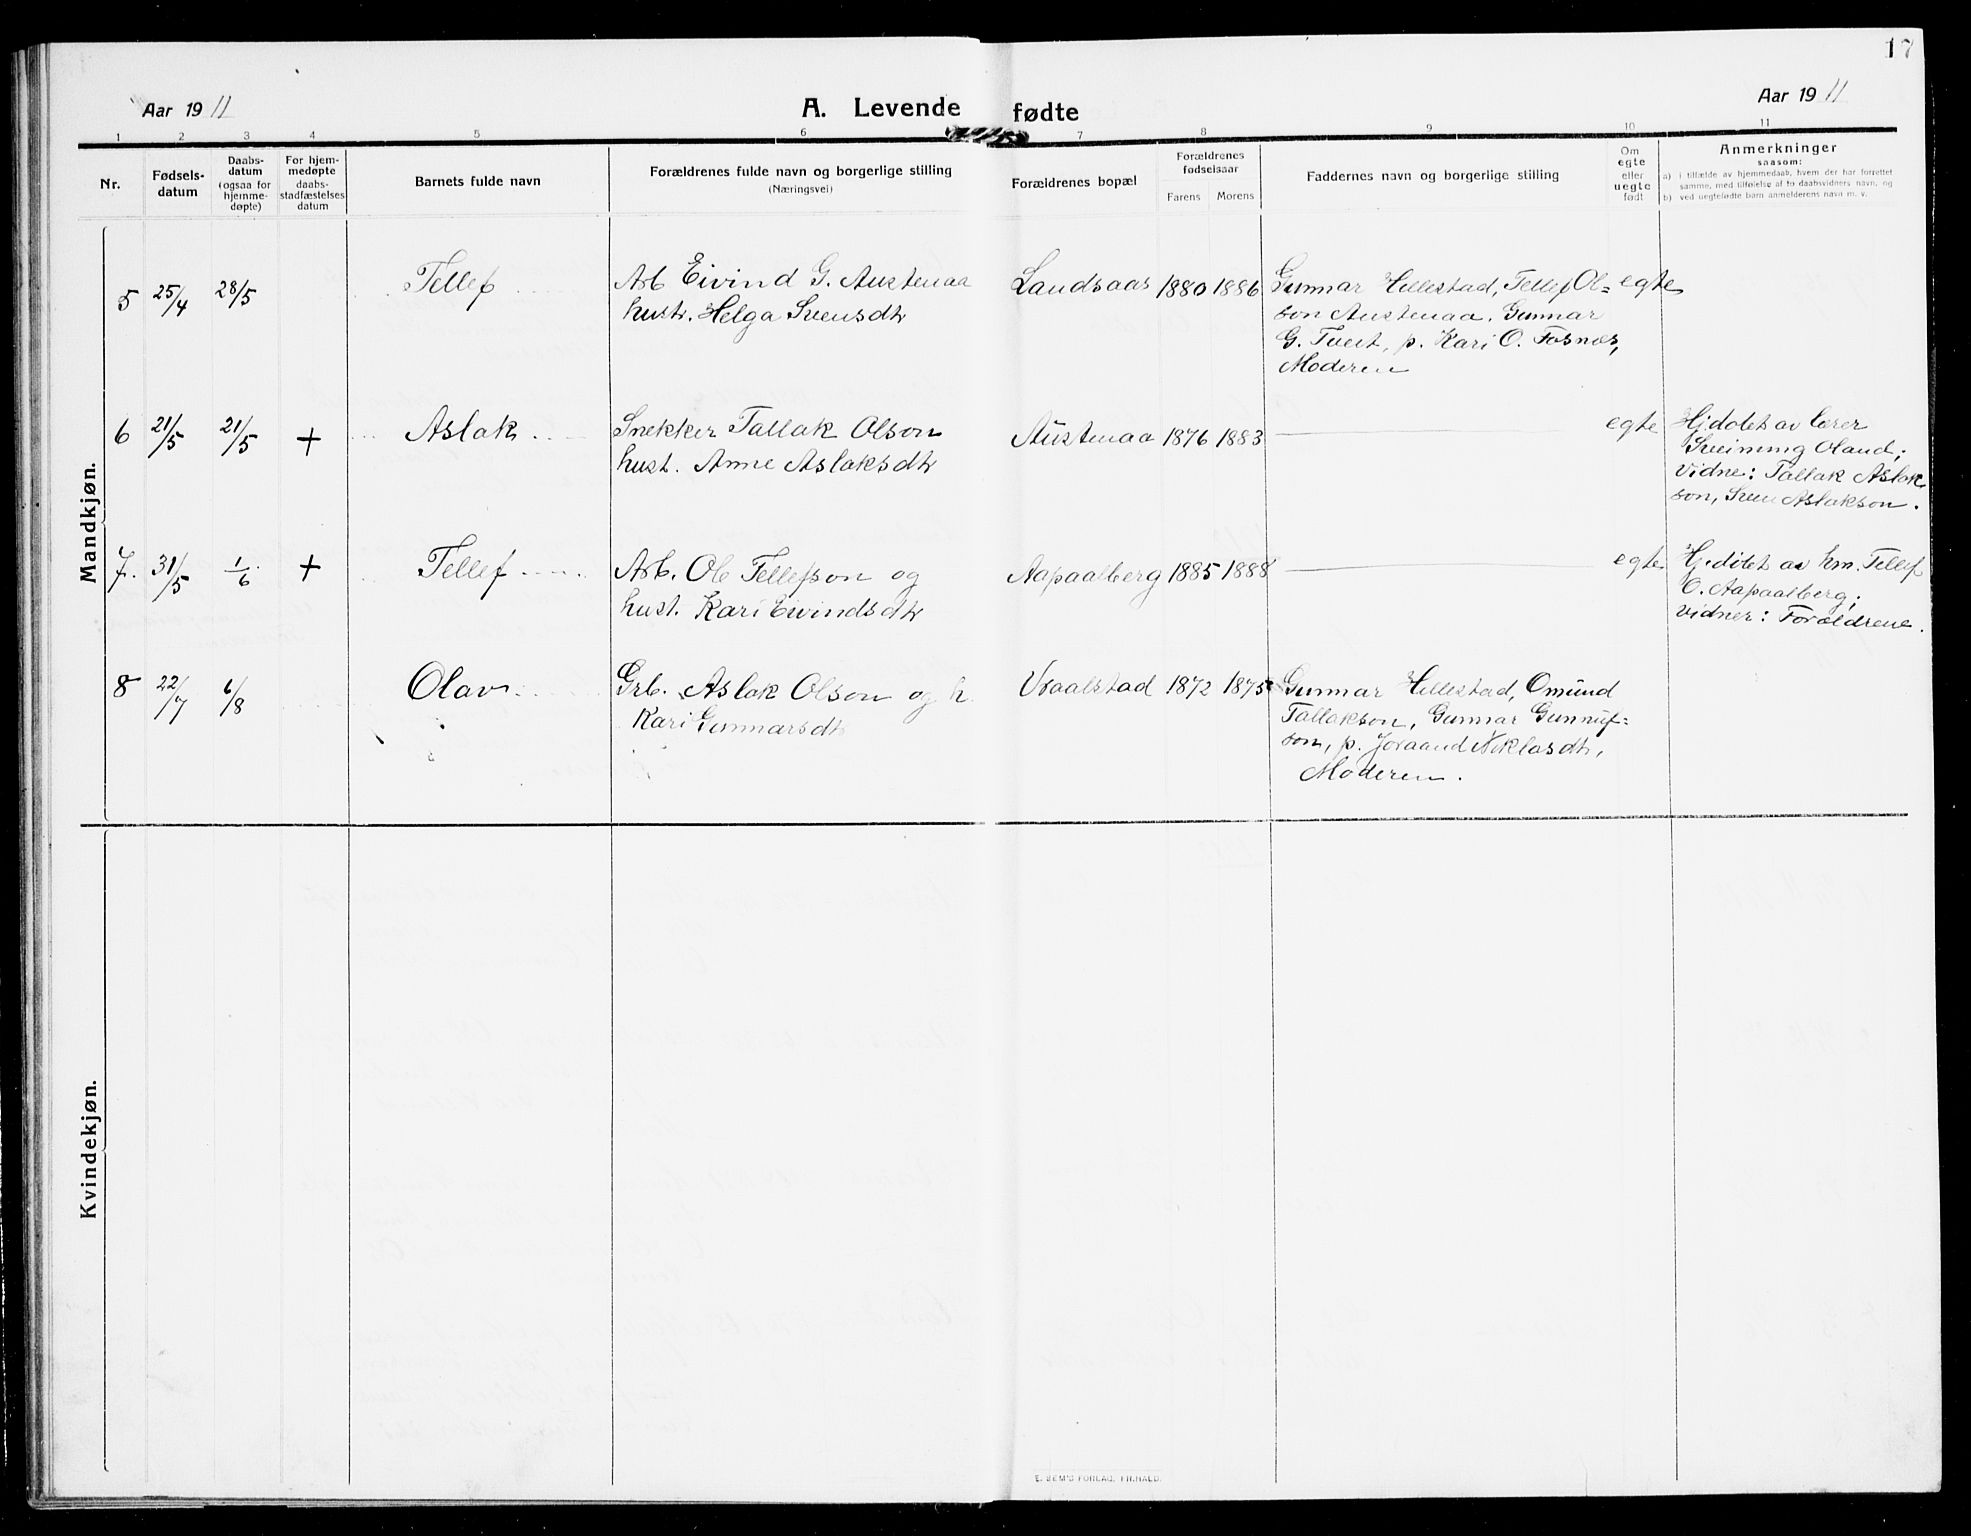 17
Aar 1911
A. Levende fødte
Aar 1911
1 2 3 4 5 6 7 8 9 10 11
Nr.
Fødsels-
datum
Daabs-
datum
(ogsaa for
hjemme-
døpte)
For hjem-
medøpte
daabs-
stadfæstelses
datum
Barnets fulde navn
Forældrenes fulde navn og borgerlige stilling
(Næringsvei)
Forældrenes bopæl
Forældrenes
fødselsaar
Farens Morens
Faddernes navn og borgerlige stilling
Om
egte
eller
uegte
født
Anmerkninger
saasom:
a) i tilfælde av hjemmedaab, hvem der har forrettet
samme, med tilføielse af to daabsvidners navn, og
b) ved uegtefødte barn anmelderens navn m. v.
Mandkjøn.
5 25/4 28/5 Tellef
Arb Eivind G. Austenaa
hustr. Helga Svensdtr
Landsaas 1880 1886
Gunnar Hillestad, Tellef Ol=
son Austenaa, Gunnar
G. Tveit, p. Kari O. Fosnes,
Moderen
egte
6 21/5 21/5 + Aslak
Snekker Tallak Olson
hust. Anne Aslaksdtr
Austenaa 1876 1883
egte
Hjdøbt av lærer
Sveinung Oland;
vidne: Tallak Aslak
son, Sven Aslakson.
7. 31/5 1/6 + Tellef
Arb. Ole Tellefson og
hust. Kari Eivindsdtr
Aapaalberg 1885 1888
egte
Hj.døbt av hm. Tellef
O. Aapaalberg;
vidner: Forældrene.
8 22/7 6/8 Olav
Grb. Aslak Olson og h.
Kari Gunnarsdtr
Vraalstad 1872 1875
Gunnar Hillestad, Omund
Tallakson, Gunnar Gunnuf=
son, p. Joraand Niklasdtr,
Moderen.
Kvindekjøn.
E. SEM'S FORLAG, FR.HALD.